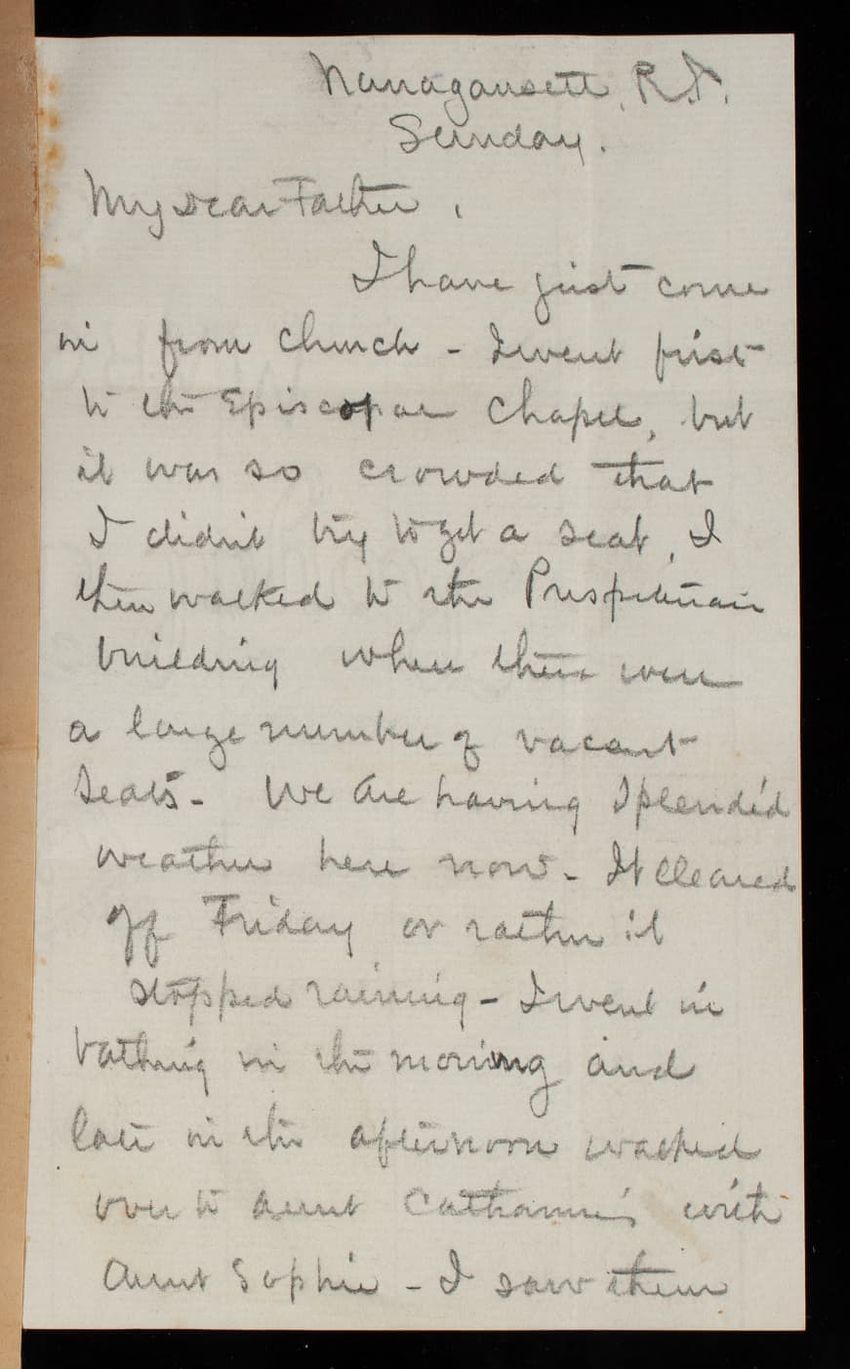 Narragansett, R.I.
Sunday.
My dear Father,
I have just come
in from church - I went first
to the Episcopal Chapel, but
it was so crowded that
I didn't try to get a seat, I
then walked to the Presbeterian
building where there were
a large number of vacant
seats - We are having splendid
weather here now - It cleared
off Friday or rather it
stopped raining - I went in
bathing in the morning and
late in the afternoon walked
over to Aunt Catharine's with
Aunt Sophie - I saw them